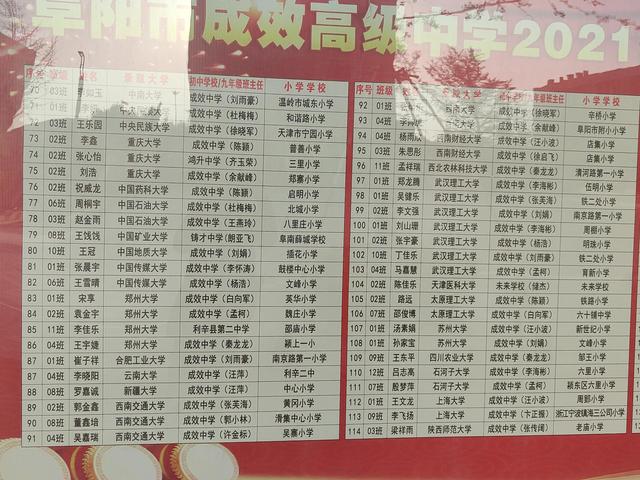 阜阳市成效高级中学2021
序号 班级 姓名 录取大学 初中学校/九年级班主任 小学学校
70 03班 中南大学 成效中学（刘雨豪） 温岭市城东小学
71 01班 成效中学（杜梅梅） 和谐路小学
72 03班 王乐园 中央民族大学 成效中学（徐晓芳） 天津市宁园小学
73 02班 李鑫 重庆大学 成效中学（陈颖） 普善小学
74 02班 张心怡 重庆大学 鸿升中学（齐玉荣） 三里小学
75 02班 刘浩 重庆大学 成效中学（余献峰） 郑寨小学
76 02班 祝威龙 中国药科大学 成效中学（陈颖） 启明小学
77 06班 周桐宇 中国石油大学 成效中学（杜梅梅） 北城小学
78 03班 赵金雨 中国石油大学 成效中学（王燕玲） 八里庄小学
79 08班 王饯饯 中国矿业大学 铸才中学（朗亚飞） 阜南薛城学校
80 10班 王冠 中国地质大学 成效中学（刘娟） 插花小学
81 01班 张晨宇 中国传媒大学 成效中学（李怀涛） 鼓楼中心小学
82 06班 王雪晴 中国传媒大学 成效中学（杨浩） 文峰小学
83 01班 宋享 郑州大学 成效中学（白向军） 英华小学
84 02班 袁金宇 郑州大学 成效中学（孟柯） 魏庄小学
85 11班 李佳乐 郑州大学 利辛县第二中学 邵庙小学
86 04班 王宇婕 郑州大学 成效中学（秦龙龙） 颍上一小
87 01班 崔子祥 合肥工业大学 成效中学（刘雨豪） 南京路第一小学
87 04班 李晓阳 云南大学 成效中学（汪萍） 利辛二中
88 08班 罗嘉诚 新疆大学 成效中学（汪萍） 中心小学
89 02班 郭金鑫 西南交通大学 成效中学（张英海） 黄冈小学
90 08班 董鑫培 西南交通大学 成效中学（郭小林） 滑集中心小学
91 04班 吴嘉瑞 西南交通大学 成效中学（许金标） 吴寨小学
序号 班级 录取大学 初中学校/九年级班主任 小学学校
92 01班 西南大学 成效中学（徐晓芳） 辛桥小学
93 04班 成效中学（余献峰） 阜阳市附小小学
94 04班 杨雨 西南财经大学 成效中学（汪小波） 店集小学
95 03班 朱思彤 西南财经大学 成效中学（徐启飞） 店集小学
96 11班 孟祥瑞 西北农林科技大学 成效中学（秦龙龙） 清河路第一小学
97 01班 郑龙腾 武汉理工大学 成效中学（李海彬） 伍明小学
98 01班 吴健乐 武汉理工大学 成效中学（张英海） 铁二处小学
99 02班 李文强 武汉理工大学 成效中学（刘娟） 南京路第一小学
100 01班 刘山珊 武汉理工大学 成效中学（李海彬） 周棚小学
101 02班 张宇豪 武汉理工大学 成效中学（杨浩） 明珠小学
102 10班 丁佳乐 武汉理工大学 成效中学（刘雨豪） 铁二处小学
103 04班 马嘉慧 武汉理工大学 成效中学（孟柯） 育新小学
104 02班 陈佳乐 天津医科大学 未来学校（储杰） 未来学校
105 02班 路远 太原理工大学 成效中学（陈颖） 铁路小学
106 07班 邵俊博 太原理工大学 成效中学（白向军） 六十铺中学
107 01班 汤素娟 苏州大学 成效中学（汪小波） 新世纪小学
108 01班 孙家宝 苏州大学 成效中学（刘娟） 文峰小学
109 09班 王东平 四川农业大学 成效中学（秦龙龙） 邹王小学
110 12班 吕志高 石河子大学 成效中学（李海彬） 六里小学
111 07班 殷梦萍 石河子大学 成效中学（孟柯） 颍东区六里小学
112 01班 王文龙 上海大学 成效中学（汪小波） 周郢小学
113 09班 李飞扬 上海大学 成效中学（卞正报） 浙江宁波镇海三公司小学
114 03班 梁祥雨 陕西师范大学 成效中学（张传阔） 老庙小学